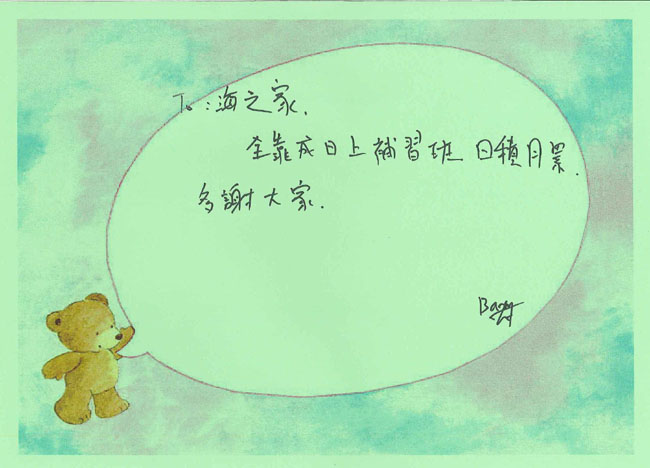 To:海之家.
全靠成日上補習班 日積月累.
多謝大家.